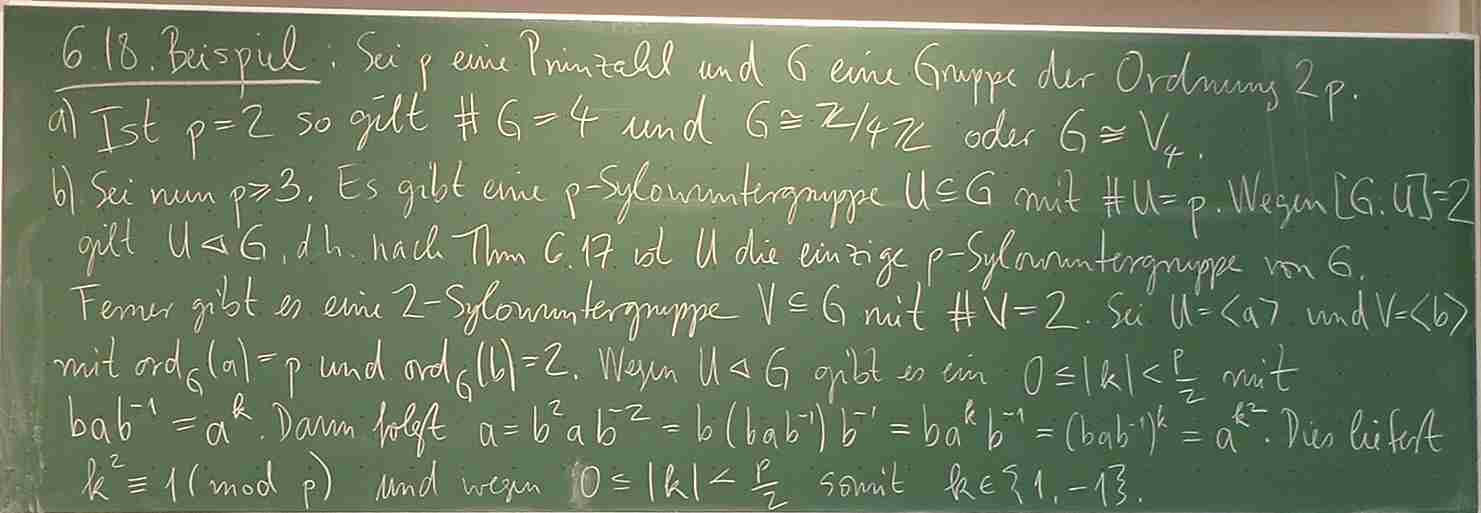 6.18. Beispiel: Sei p eine Primzahl und G eine Gruppe der Ordnung 2p.
a) Ist p=2 so gilt #G=4 und G≅ℤ/4ℤ oder G≅V₄.
b) Sei nun p≥3. Es gibt eine p-Sylowuntergruppe U⊆G mit #U=p. Wegen [G:U]=2
gilt U⊲G, d.h. nach Thm 6.17 ist U die einzige p-Sylowuntergruppe von G.
Ferner gibt es eine 2-Sylowuntergruppe V⊆G mit #V=2. Sei U=⟨a⟩ und V=⟨b⟩
mit ord_G(a)=p und ord_G(b)=2. Wegen U⊲G gibt es ein 0≤|k|<p/2 mit
bab⁻¹=aᵏ. Dann folgt a=b²ab⁻²=b(bab⁻¹)b⁻¹=baᵏb⁻¹=(bab⁻¹)ᵏ=a^{k²}. Dies liefert
k²≡1(mod p) und wegen 0≤|k|<p/2 somit k∈{1,-1}.